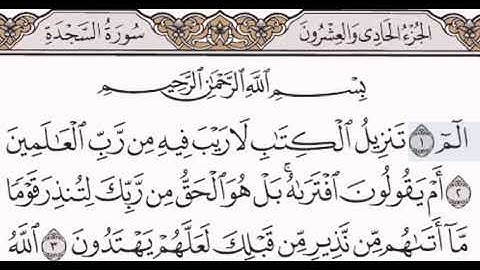 الجزء الحادي والعشرون سورة السجدة
بِسْمِ ٱللَّهِ ٱلرَّحْمَٰنِ ٱلرَّحِيمِ
الٓمٓ ١ تَنزِيلُ ٱلْكِتَٰبِ لَا رَيْبَ فِيهِ مِن رَّبِّ ٱلْعَٰلَمِينَ
٢ أَمْ يَقُولُونَ ٱفْتَرَىٰهُ ۚ بَلْ هُوَ ٱلْحَقُّ مِن رَّبِّكَ لِتُنذِرَ قَوْمًا
مَّآ أَتَىٰهُم مِّن نَّذِيرٍ مِّن قَبْلِكَ لَعَلَّهُمْ يَهْتَدُونَ ٣ ٱللَّهُ